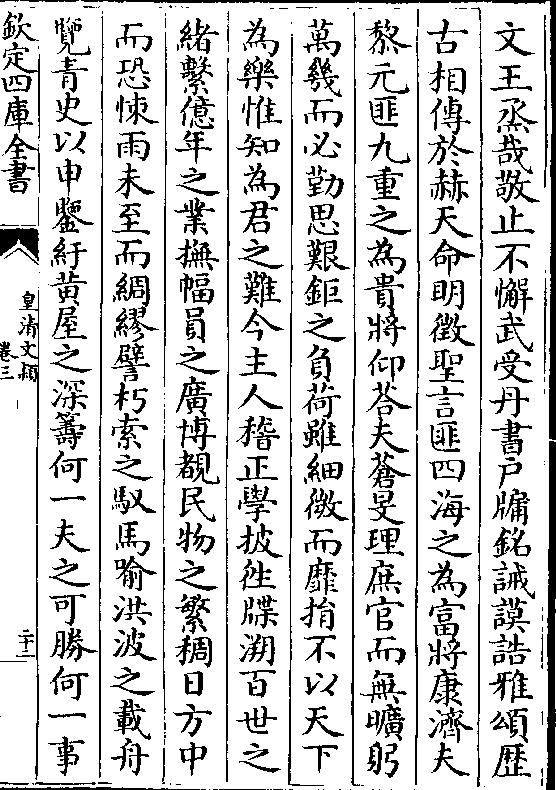 文王烝哉敬止不懈武受丹書戸牖銘誡謨誥雅頌歴
古相傳於赫天命明徵聖言匪四海之為富將康濟夫
黎元匪九重之為貴將仰荅夫蒼旻理庶官而無曠躬
萬幾而必勤思艱鉅之負荷雖細微而靡捐不以天下
為樂惟知為君之難今主人稽正學披徃牒溯百世之
緒繫億年之業撫幅員之廣博覩民物之繁稠日方中
而恐悚雨未至而綢繆譬朽索之馭馬喻洪波之載舟
覽青史以申鑒紆黄屋之深籌何一夫之可勝何一事
欽定四庫全書
皇清文頴
卷三
二十三